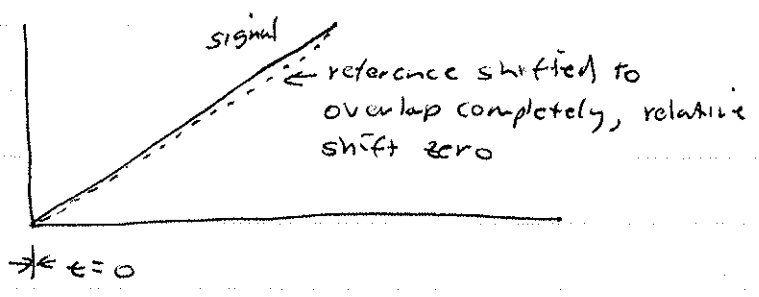 signal
reference shifted to
overlap completely, relative
shift zero
t=0